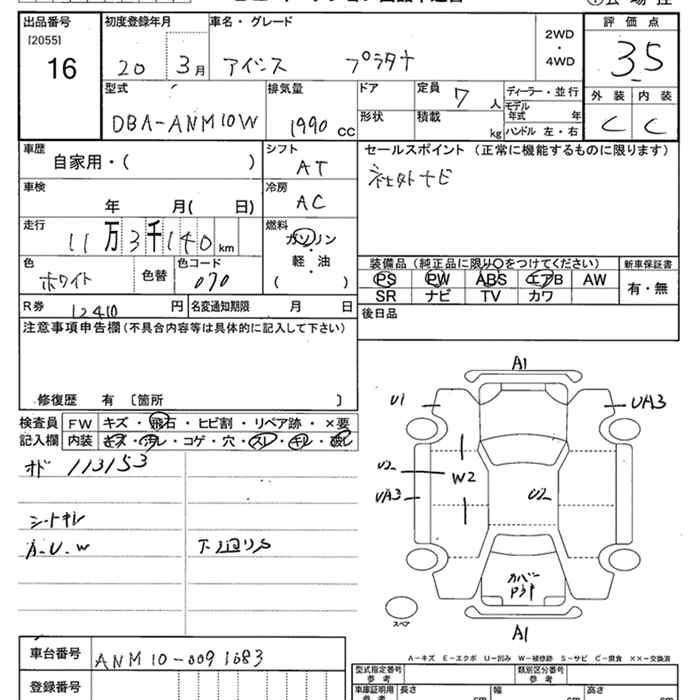 出品番号 初度登録年月 車名・グレード 評価点
[2055] 2WD・4WD
16 20 3月 アイシス プラタナ 3.5
型式 排気量 ドア 定員 7人 ディーラー・並行 外装 内装
DBA-ANM10W 1990 cc 形状 積載 kg モデル年式 年 C C
ハンドル 左・右
車歴 シフト セールスポイント (正常に機能するものに限ります)
自家用・( ) AT 社外ナビ
車検 冷房
年 月( 日) AC
走行 燃料
11万3千140km ガソリン・軽・油
( )
色 色替 色コード 装備品(純正品に限り○をつけてください) 新車保証書
ホワイト 070 PS PW ABS エアB AW 有・無
SR ナビ TV カワ
R券 12410円 名変通知期限 月 日 後日品
注意事項申告欄(不具合内容等は具体的に記入して下さい)
修復歴 有 [箇所 ]
検査員記入欄 FW キズ・飛石・ヒビ割・リペア跡・×要
内装 キズ・汚レ・コゲ・穴・スレ・キレ・破レ
オド 113153
シートキレ
A-U-W 下廻りS
A1
U1 UA3
U2 W2 U2
UA3
カバー
スペア A1
A-キズ E-エクボ U-凹み W-補修跡 S-サビ C-腐食 ××-交換済
車台番号 ANM10-0091683
登録番号
型式指定番号 参考 類別区分番号 参考
車庫証明用 参考 長さ cm 幅 cm 高さ cm